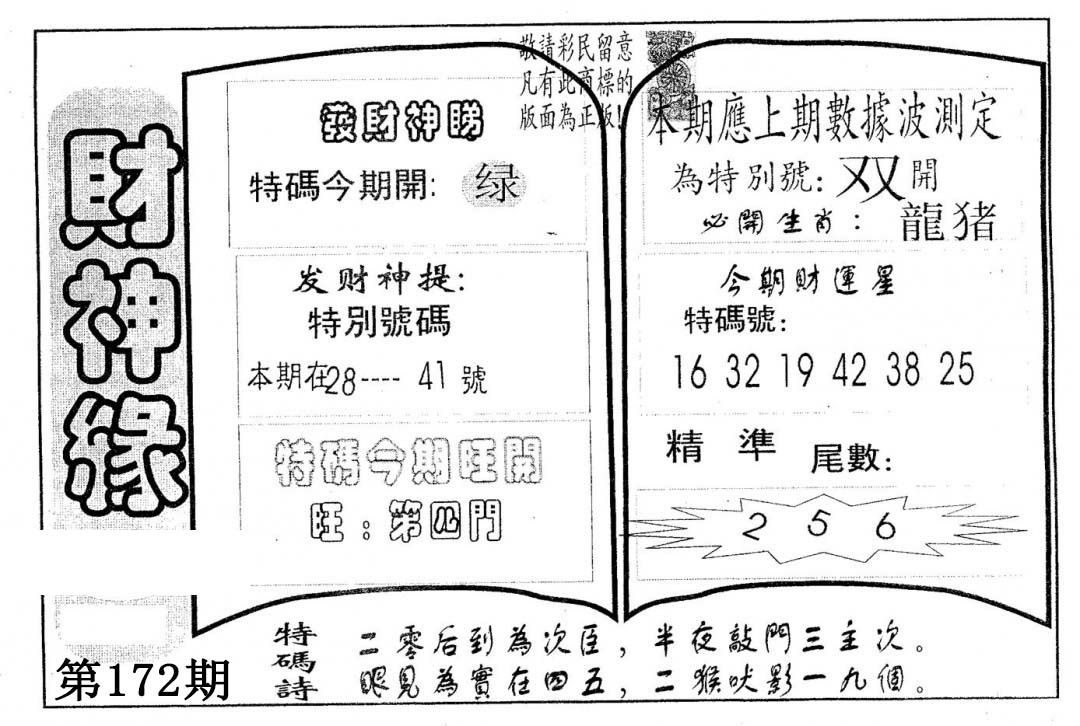 財神緣
第172期
敬請彩民留意
凡有此商標的
版面為正版!
發財神睇
特碼今期開: 绿
发财神提:
特別號碼
本期在28---- 41號
特碼今期旺開
旺:第四門
本期應上期數據波測定
為特別號:双開
必開生肖: 龍猪
今期財運星
特碼號:
16 32 19 42 38 25
精準 尾數:
2 5 6
特碼詩
二零后到為次臣,半夜敲門三主次。
眼見為實在四五,二猴吠影一九個。